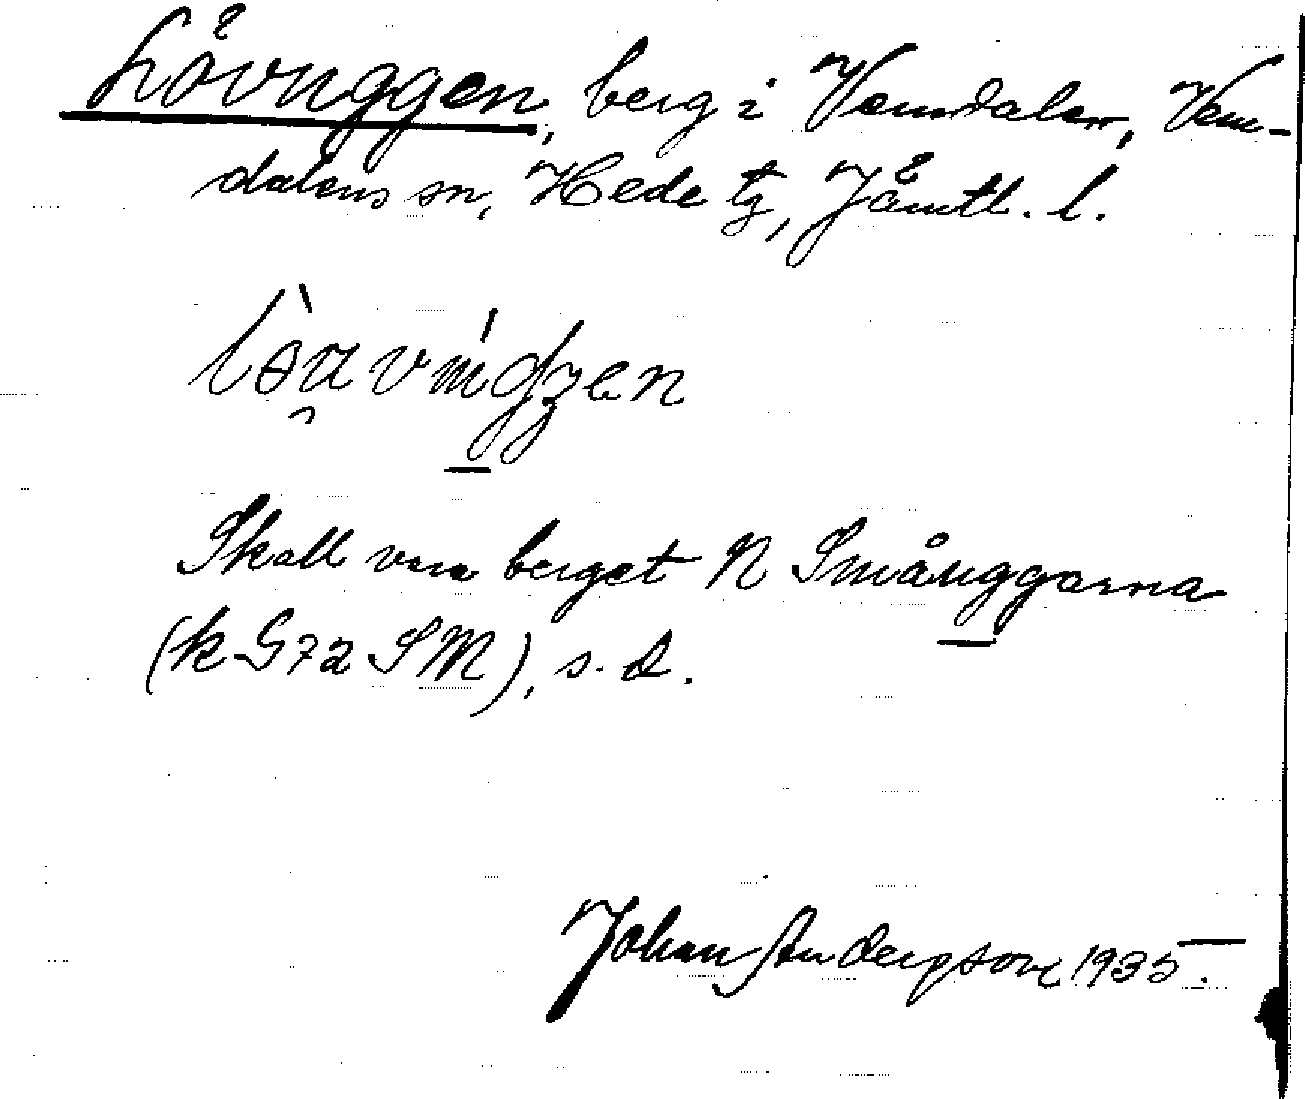 Lövruggen, berg i Vemdalen, Vem-
dalens sn, Hede tg, Jämtl. l.
Skall vara berget N Småruggarna
(k G72 SM), s. d.
Johan Anderson 1935.